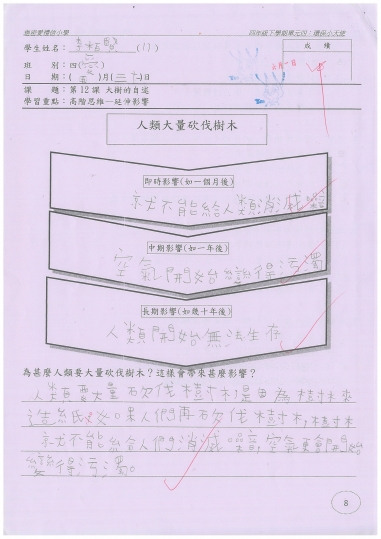 四年級下學期單元四：環保小太陽
學生姓名：李 (11)
成績
班別：四(愛)
日期：( 五 )月(三十)日
課題：第12課 大樹的自述
學習重點：高階思維—延伸影響
人類大量砍伐樹木
即時影響(如一個月後)
就不能給人類消減噪
中期影響(如一年後)
空氣開始變得污濁
長期影響(如幾十年後)
人類開始無法生存
為甚麼人類要大量砍伐樹木？這樣會帶來甚麼影響？
人類要大量砍伐樹木，是因為樹木來
造紙，如果人們再砍伐樹木，樹林
就不能給人們消減噪音，空氣更會開始
變得污濁。
8